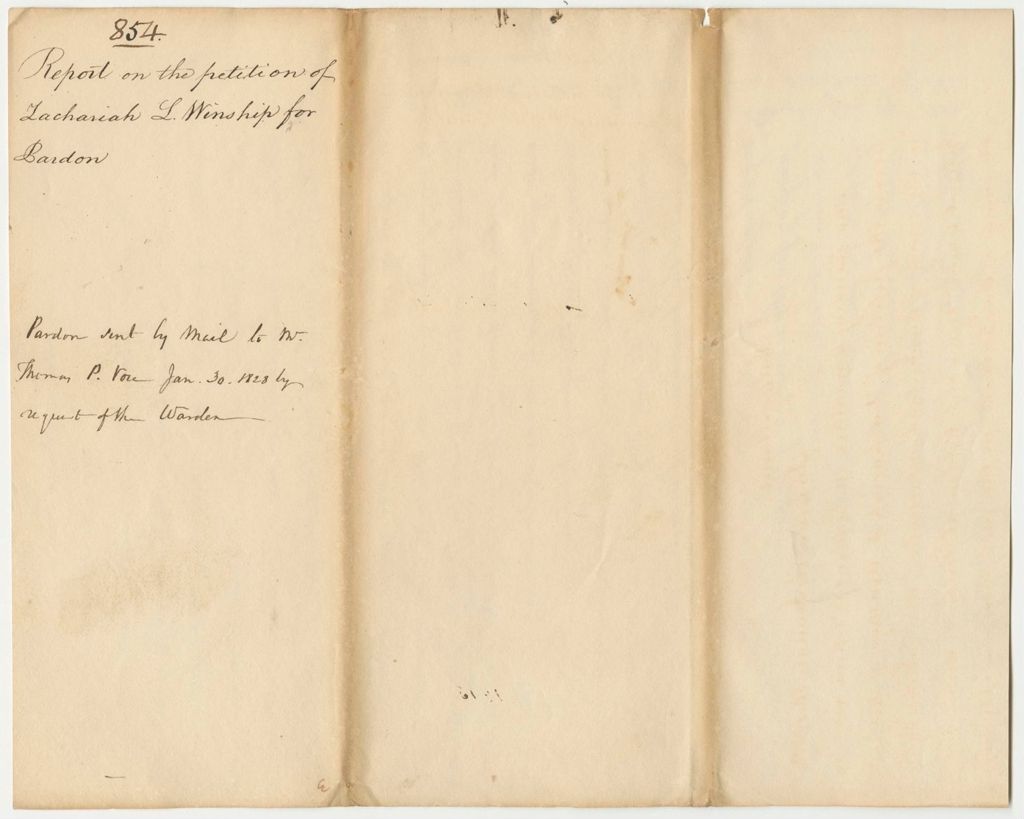 854.
Report on the petition of
Zachariah L. Winship for
Pardon
Pardon sent by Mail to Mr.
Thomas P. Vose Jan. 30. 1828 by
request of the Warden